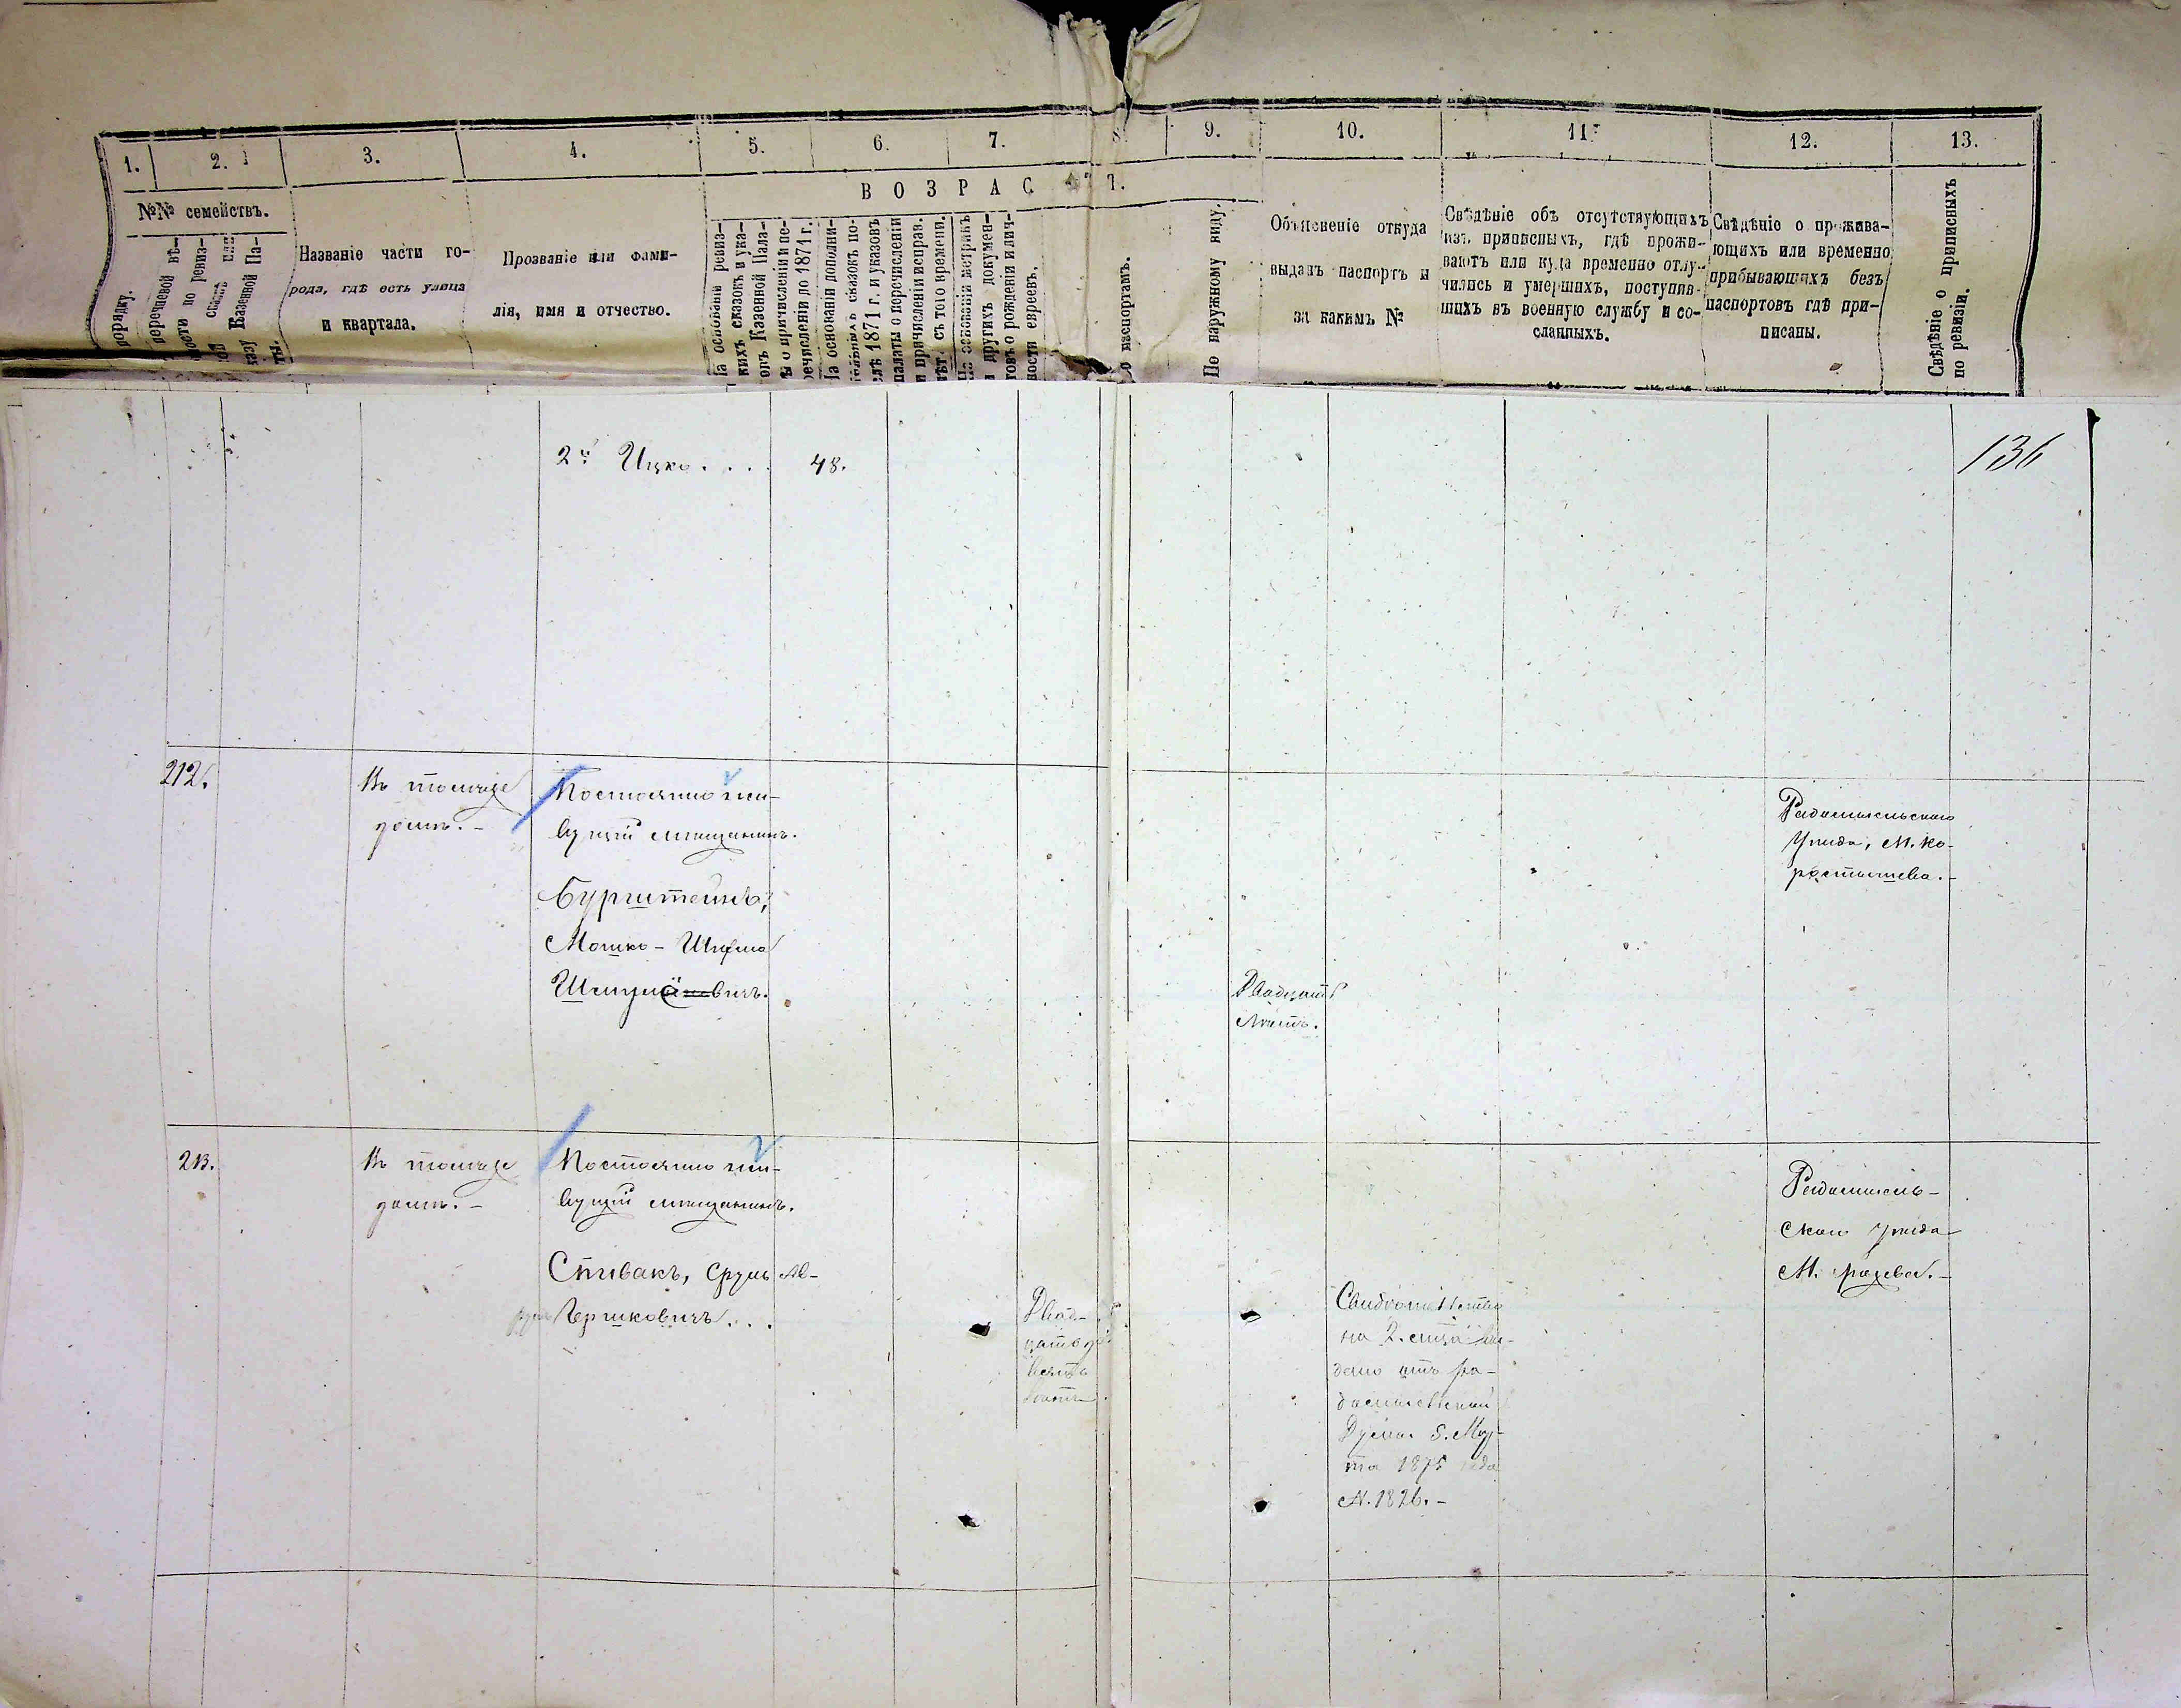 1.
2.
3.
4.
5.
6.
7.
8.
9.
10.
11.
12.
13.
ВОЗРАСТ.
№№ семействъ.
порядку.
перечневой вѣ-
ности по ревиз-
ной сказкѣ или
казу Казенной Па-
ты.
Названіе части го-
рода, гдѣ есть улица
и квартала.
Прозваніе или фами-
лія, имя и отчество.
На основаніи ревиз-
кихъ сказокъ и ука-
овъ Казенной Пала-
ы о причисленіи и пе-
речисленіи до 1871 г.
На основаніи дополни-
тельныхъ сказокъ по-
слѣ 1871 г. и указовъ
палаты о перечисленіи
и причисленіи исправ.
лѣт. съ того времени.
На основаніи метрикъ
и другихъ докумен-
товъ о рожденіи и лич-
ности евреевъ.
по паспортамъ.
По наружному виду.
Объясненіе откуда
выданъ паспортъ и
за какимъ №
Свѣдѣніе объ отсутствующихъ
изъ приписныхъ, гдѣ прожи-
ваютъ или куда временно отлу-
чились и умершихъ, поступив-
шихъ въ военную службу и со-
сланныхъ.
Свѣдѣніе о прожива-
ющихъ или временно
прибывающихъ безъ
паспортовъ гдѣ при-
писаны.
Свѣдѣніе о приписныхъ
по ревизіи.
2й Ицко....
48.
136
212.
Въ томъ же
домѣ.-
Постоянно жи-
вущій мѣщанинъ.
Бурштейнъ,
Мошко-Шлёма
Шмулёвичъ.
Двадцать
лѣтъ.
Радомысльскаго
Уѣзда, М. Ко-
ростышева.-
213.
Въ томъ же
домѣ.-
Постоянно жи-
вущій мѣщанинъ.
Спивакъ, Сруль Ав-
румъ Гершковичъ...
Двад-
цать д
вять
лѣтъ.
Свидѣтельство
на 2. листа вы-
дано отъ Ра-
домысльской
Думы 5. Мар-
та 1875 года
N. 1826.-
Радомысль-
скаго уѣзда
М.